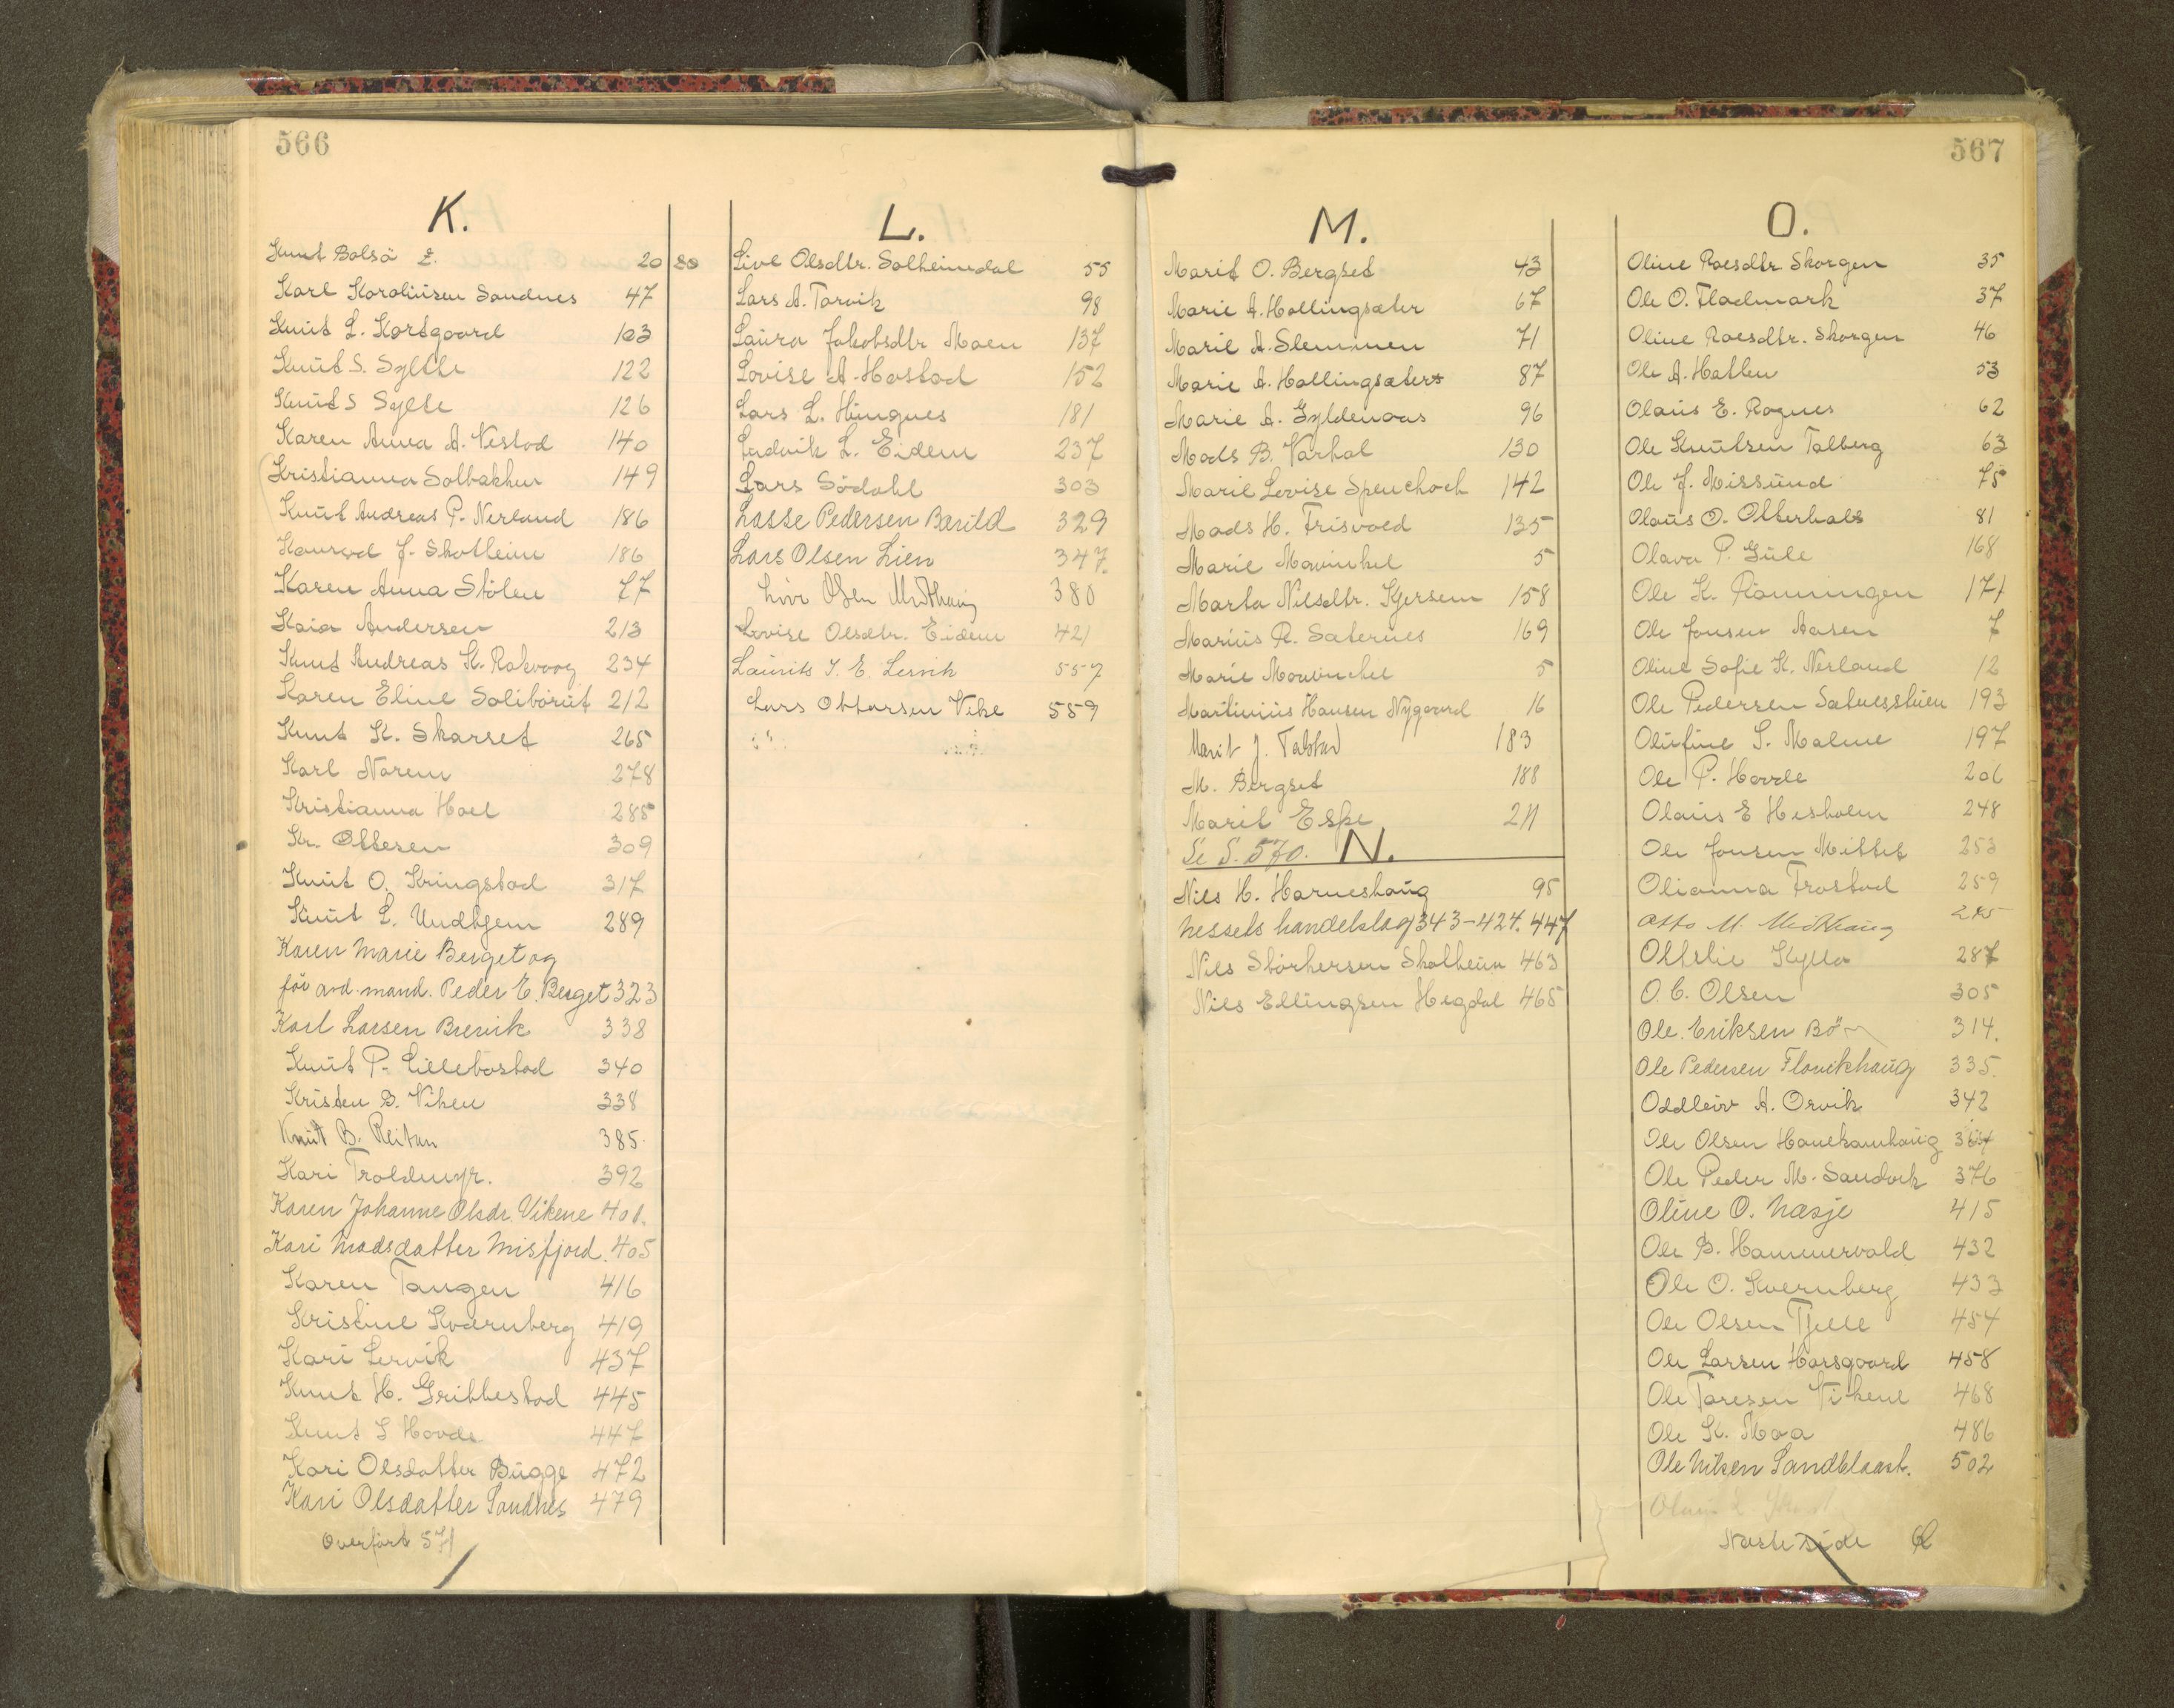 566
K.
Knut Bolsö L. 20 80
Karl Karolinsen Sandnes 47
Knut L. Kortgaard 103
Knut S. Sylthe 122
Knut S Sylte 126
Karen Anna A. Nestad 140
Kristianna Solbakken 149
Knut Andreas P. Nerland 186
Konrad J. Skotheim 186
Karen Anna Stölen 77
Kaia Andersen 213
Knut Andreas K. Rakvaag 234
Karen Eline Soliborüt 212
Knut K. Skarset 265
Karl Norem 278
Kristianna Hoel 285
Kr. Ottesen 309
Knut O. Kringstad 317
Knut L. Undhjem 289
Karen Marie Berget og
för avd. mand. Peder E. Berget 323
Karl Larsen Brevik 338
Knut P. Lillebostad 340
Kristen B. Viken 338
Knut B. Reitan 385
Kari Troldmyr. 392
Karen Johanne Olsdr. Vikene 401.
Kari Madsdatter Misfjord. 405
Karen Tangen 416
Kristine Kvernberg 419
Kari Lervik 437
Knut H. Gribbestad 445
Knut S Hovde 447
Kari Olsdatter Bugge 472
Kari Olsdatter Sandnes 479
Overfört 571
L.
Live Olsdtr. Solheimdal 55
Lars A. Torvik 98
Laura Jakobsdtr Moen 137
Lovise A. Hostad 152
Lars L. Hungnes 181
Ludvik L. Eidem 237
Lars Södahl 303
Lasse Pedersen Barild 329
Lars Olsen Lien 347.
Liva Olsen Midthaug 380
Lovise Olsdtr. Eidem 421
Laurits I. E. Lervik 557
Lars Ottarsen Vike 559
567
M.
Marit O. Bergset 43
Marie A. Hollingsæter 67
Marie A. Slemmen 71
Marie A. Hollingsæter 87
Marie A. Gyldenaas 96
Mads B. Varhol 130
Marie Lovise Spenchoch 142
Mads H. Frisvold 135
Marie Mowinkel 5
Marta Nilsdtr. Kjersem 158
Marius R. Saternes 169
Marie Mowinckel 5
Martinius Hansen Nygaard 16
Marit J. Talstad 183
M. Bergset 188
Marit Espe 211
Se S. 570. N.
Nils H. Harneshaug 95
Nessets handelslag 343-424. 447
Nils Storkersen Skolheim 463
Nils Ellingsen Hegdal 465
O.
Oline Roesdtr Skorgen 35
Ole O. Flademark 37
Oline Roesdtr. Skorgen 46
Ole A. Hatlen 53
Olaus E. Rognes 62
Ole Knutsen Talberg 63
Ole J. Missund 75
Olaus O. Otterhals 81
Olava P. Gule 168
Ole K. Rönningen 171
Ole Jonsen Aasen 7
Oline Sofie K. Nerland 12
Ole Pedersen Satnesstuen 193
Olufine S. Malme 197
Ole P. Hovde 206
Olaus E Hesholm 248
Ole Jonsen Mittet 253
Olianna Frostad 259
Otto M. Midthaug 285
Ottelie Kylla 287
O. C. Olsen 305
Ole Eriksen Bö 314.
Ole Pedersen Flovikhaug 335.
Oddleiv A. Orvik 342
Ole Olsen Hanekamhaug 364
Ole Peder M. Sandvik 376
Oline O. Næsje 415
Ole B. Hammervold 432
Ole O. Kvernberg 433
Ole Olsen Tjelle 454
Ole Larsen Horsgaard 458
Ole Toresen Vikene 468
Ole K. Moa 486
Ole Nilsen Sandblaast. 502
Næste side